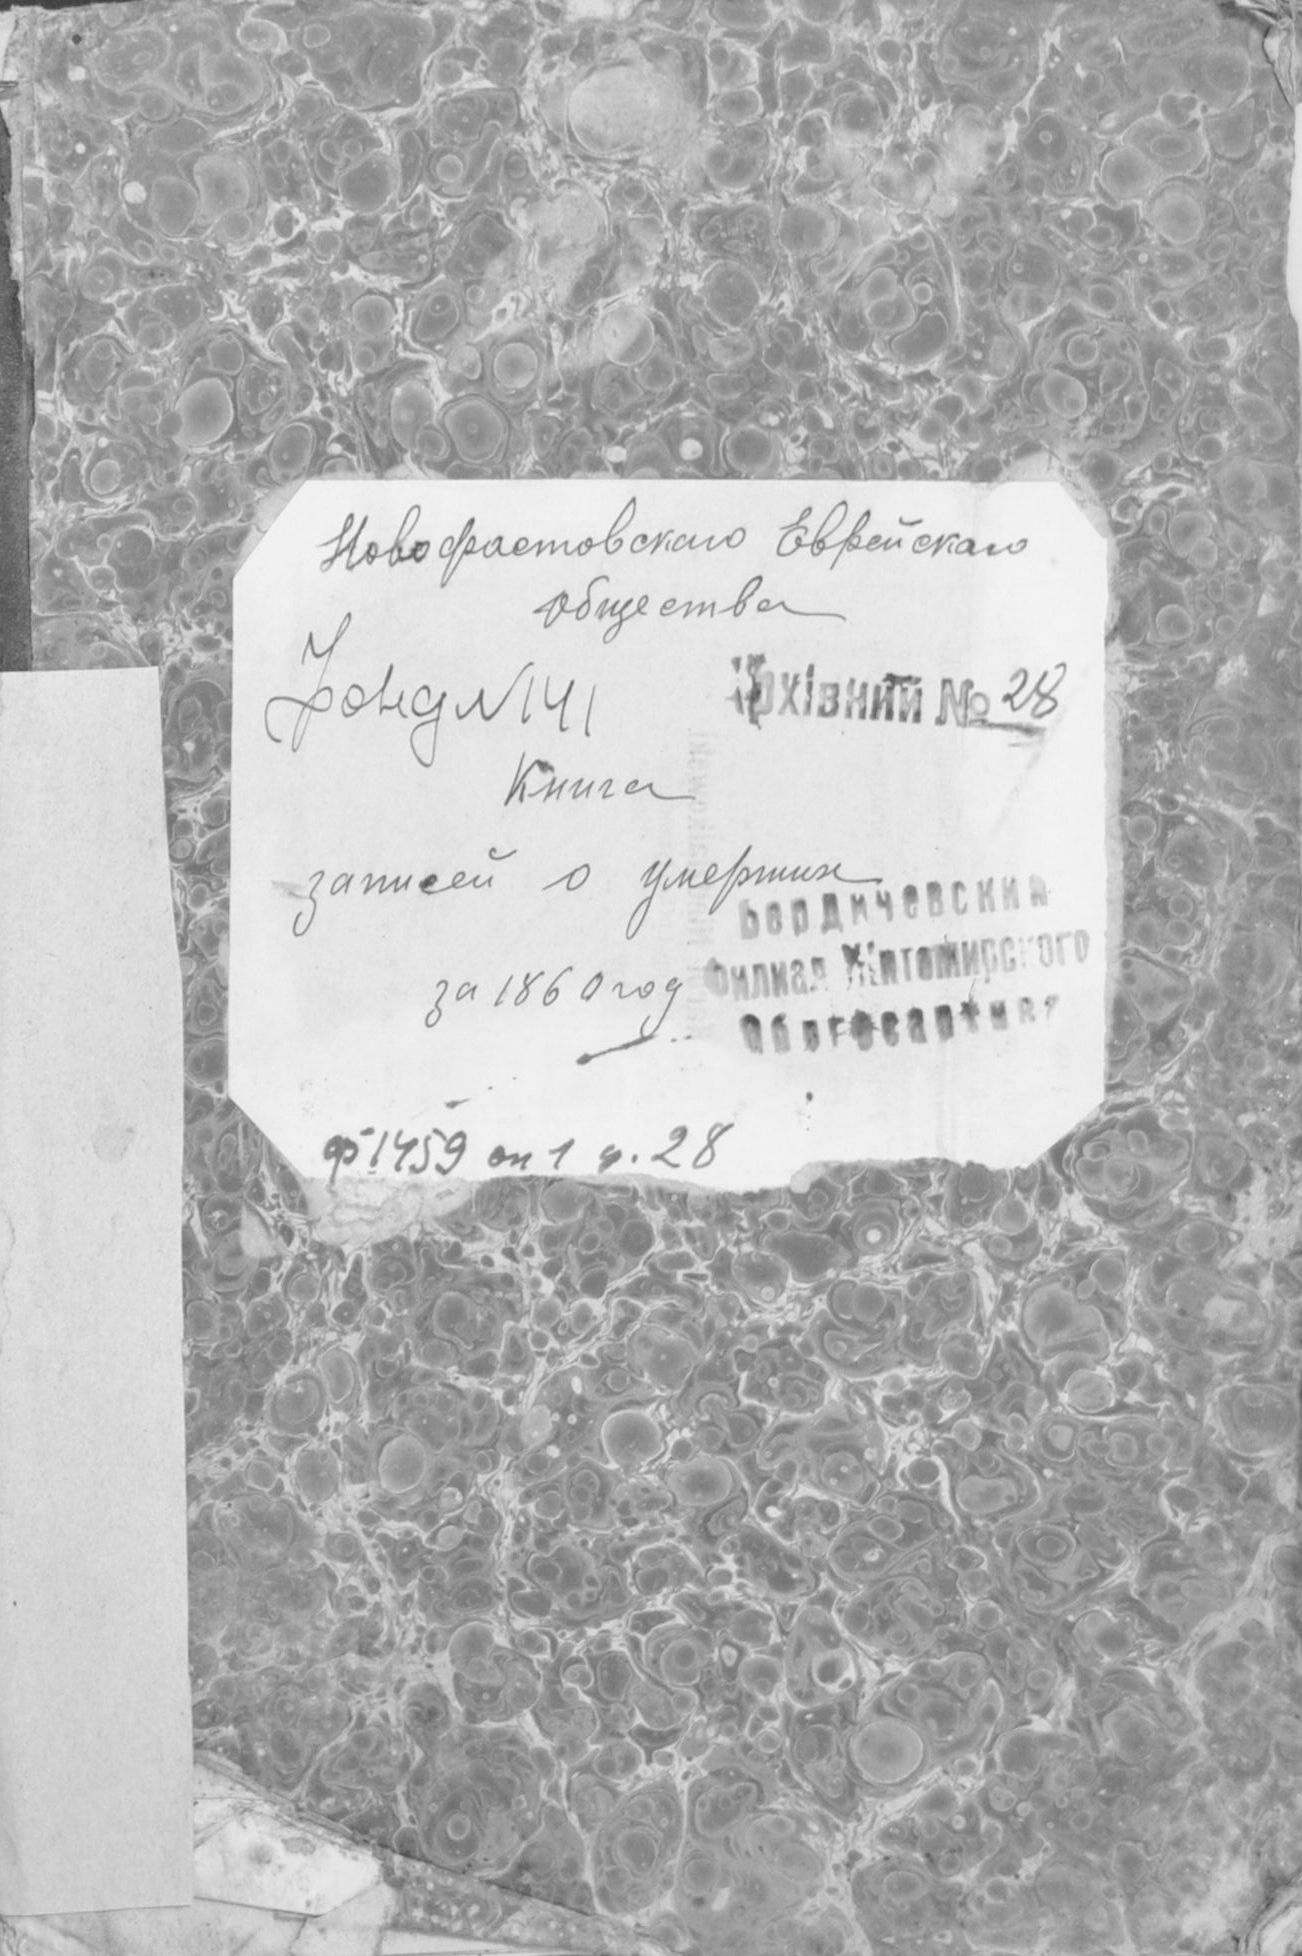 Новофастовскаго Еврейскаго
общества
Фонд N 141
Архівний № 28
Книга
записей о умерших
за 1860 год
Бердичевский
филиал Житомирского
Облгосархива
ф 1459 оп 1 д. 28